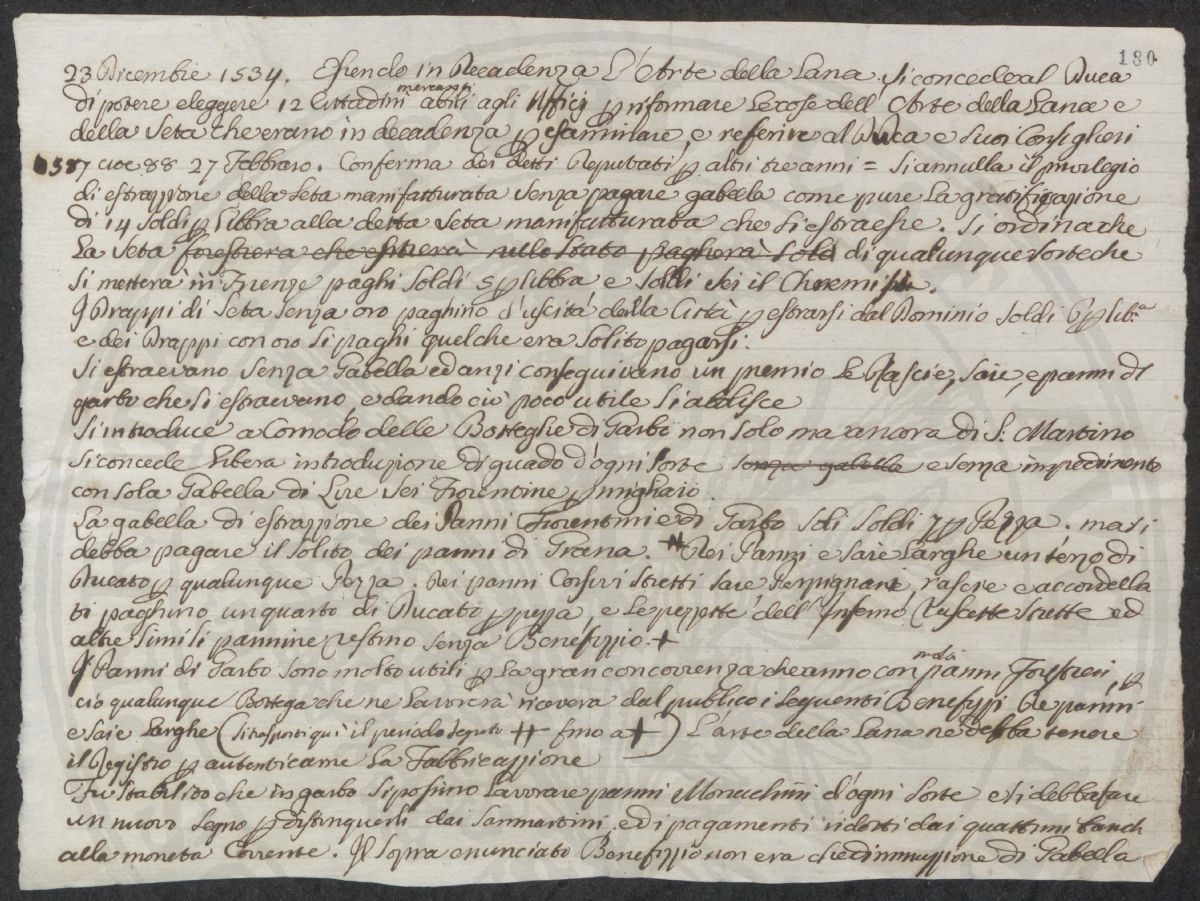 180
23 Dicembre 1534. Essendo in Decadenza L'Arte della Lana si concede al Duca
di potere eleggere 12 Cittadini mercanti abili agli Uffizj p riformare Le cose dell'Arte della Lana e
della Seta che erano in decadenza p esaminare, e referire al Duca e suoi Consiglieri
1587 cioe 88 27 Febbraro. Conferma dei detti Deputati p altri tre anni = si annulla il privilegio
di estrazzione della seta manifatturata senza pagare gabella come pure La gratificazione
di 14 soldi p Libbra alla detta seta manifatturata che si estraesse. Si ordina che
La seta forestiera che esitierà nello stato pagherà soldi di qualunque sorte che
si metterà in Firenze paghi soldi 5 p libbra e soldi sei il Cheremisi.
I Drappi di Seta senza oro paghino d'uscita della Città p estrarsi dal Dominio soldi p lib.a
e dei Drappi con oro si paghi quel che era solito pagarsi.
Si estraevano senza Gabella ed anzi conseguivano un premio Le Rascie, saie, e panni di
garbo che si estraevano, e dando ciò poco utile si abolisce
Si introduce a Comodo delle Botteghe di Garbo non solo ma ancora di S. Martino
si concede Libera introduzione di guado d'ogni sorte senza gabella e senza impedimento
con sola Gabella di Lire sei Fiorentine p migliaio.
La gabella di estrazzione dei Panni Fiorentini e di Garbo soli soldi 7 p Pezza. ma si
debba pagare il solito dei panni di Grana. Dei Panni e saie Larghe un terzo di
Ducato p qualunque Pezza. Dei panni Corsivi stretti saie Perpignani, rascie e accordella
ti paghino un quarto di Ducato p pezza e Le pezzotte dell'Inferno Rascette strette ed
altre simili pannine restino senza Benefizzio. +
I Panni di Garbo sono molto utili p La gran concorrenza che anno con molti panni Forestieri, p
ciò qualunque Bottega che ne Lavorerà riceverà dal publico i seguenti Benefizzi De panni
e saie Larghe (si trasporti quì il periodo segnato ++ fino a +) L'arte della Lana ne debba tenere
il Registro p autenticarne La Fabbricazzione
Fu stabilito che in garbo si possino Lavorare panni Monachini d'ogni sorte e si debba fare
un nuovo segno p distinguerli dai sanmartini, ed i pagamenti ridotti dai quattrini
alla moneta Corrente. Il sopra enunciato Benefizzio non era che diminuzzione di Gabella